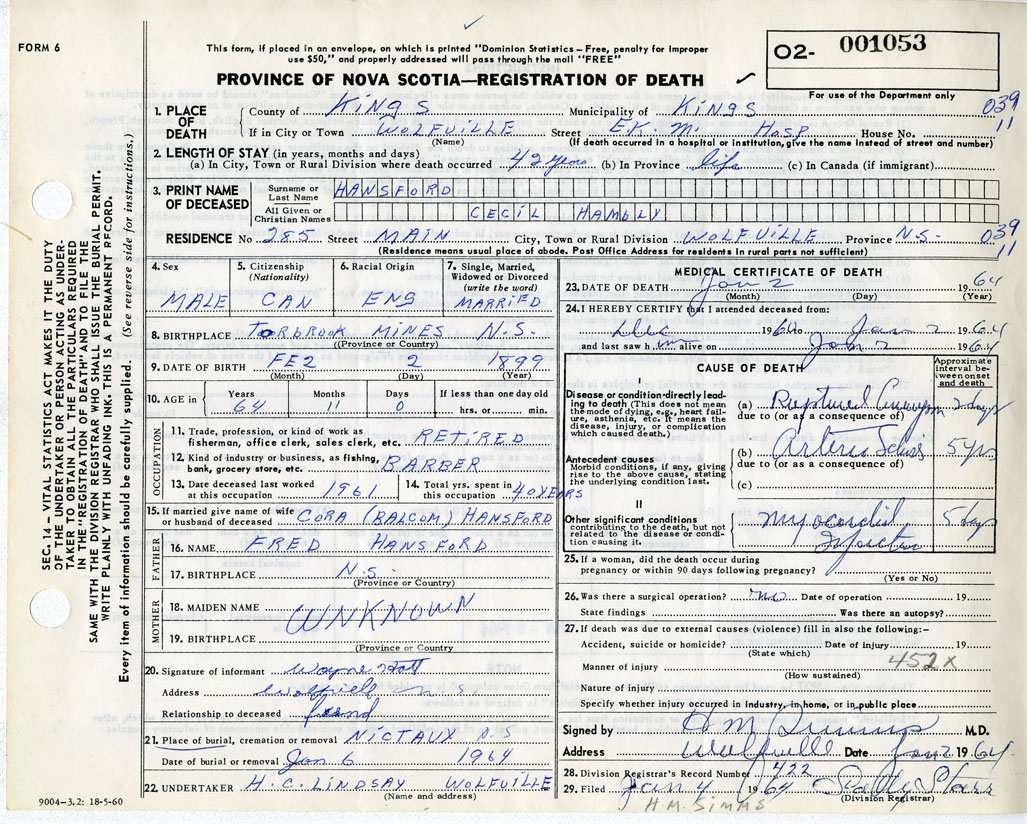 FORM 6
This form, if placed in an envelope, on which is printed "Dominion Statistics – Free, penalty for improper
use $50," and properly addressed will pass through the mail "FREE"
PROVINCE OF NOVA SCOTIA—REGISTRATION OF DEATH
O2- 001053
For use of the Department only
SEC. 14 – VITAL STATISTICS ACT MAKES IT THE DUTY
OF THE UNDERTAKER OR PERSON ACTING AS UNDER-
TAKER TO OBTAIN ALL THE PARTICULARS REQUIRED
IN THE "REGISTRATION OF DEATH" AND TO FILE THE
SAME WITH THE DIVISION REGISTRAR WHO SHALL ISSUE THE BURIAL PERMIT.
WRITE PLAINLY WITH UNFADING INK. THIS IS A PERMANENT RECORD.
Every item of information should be carefully supplied. (See reverse side for instructions.)
1. PLACE OF DEATH County of Kings Municipality of Kings 039
If in City or Town Wolfville Street E.K.M. Hosp House No. 11
(Name) (If death occurred in a hospital or institution, give name instead of street and number)
2. LENGTH OF STAY (in years, months and days)
(a) In City, Town or Rural Division where death occurred 42 years (b) In Province life (c) In Canada (if immigrant)
3. PRINT NAME OF DECEASED Surname or Last Name HANSFORD
All Given or Christian Names CECIL HAMBLY
RESIDENCE No. 285 Street MAIN City, Town or Rural Division WOLFVILLE Province N.S. 039 11
(Residence means usual place of abode. Post Office Address for residents in rural parts not sufficient)
4. Sex MALE
5. Citizenship (Nationality) CAN
6. Racial Origin ENG
7. Single, Married, Widowed or Divorced (write the word) MARRIED
8. BIRTHPLACE Torbrook MINES N.S.
(Province or Country)
9. DATE OF BIRTH FEB 2 1899
(Month) (Day) (Year)
10. AGE in Years 64 Months 11 Days 0 If less than one day old hrs. or min.
OCCUPATION
11. Trade, profession, or kind of work as
fisherman, office clerk, sales clerk, etc. RETIRED
12. Kind of industry or business, as fishing,
bank, grocery store, etc. BARBER
13. Date deceased last worked
at this occupation 1961
14. Total yrs. spent in
this occupation 40 YEARS
15. If married give name of wife
or husband of deceased CORA (BALCOM) HANSFORD
FATHER
16. NAME FRED HANSFORD
17. BIRTHPLACE N.S.
(Province or Country)
MOTHER
18. MAIDEN NAME UNKNOWN
19. BIRTHPLACE
(Province or Country)
20. Signature of informant Wayne
Address Wolfville N S
Relationship to deceased friend
21. Place of burial, cremation or removal NICTAUX N.S
Date of burial or removal Jan 6 1964
22. UNDERTAKER H.C. LINDSAY WOLFVILLE
(Name and address)
9004–3.2: 18-5-60
MEDICAL CERTIFICATE OF DEATH
23. DATE OF DEATH Jan 2 1964
(Month) (Day) (Year)
24. I HEREBY CERTIFY that I attended deceased from:
Dec 1960 to Jan 2 1964
and last saw him alive on Jan 2 1964
CAUSE OF DEATH
Approximate interval between onset and death
I
Disease or condition directly lead-
ing to death (This does not mean
the mode of dying, e.g., heart fail-
ure, asthenia, etc. It means the
disease, injury, or complication
which caused death.)
(a) Ruptured Aneurysm 2 days
due to (or as a consequence of)
Antecedent causes
Morbid conditions, if any, giving
rise to the above cause, stating
the underlying condition last.
(b) Arterio Scleros 5 yrs
due to (or as a consequence of)
(c)
II
Other significant conditions
contributing to the death, but not
related to the disease or condi-
tion causing it.
Myocardial Infarction 5 days
25. If a woman, did the death occur during
pregnancy or within 90 days following pregnancy?
(Yes or No)
26. Was there a surgical operation? no Date of operation 19
State findings Was there an autopsy?
27. If death was due to external causes (violence) fill in also the following:–
Accident, suicide or homicide? Date of injury 19
(State which) 452X
Manner of injury
(How sustained)
Nature of injury
Specify whether injury occurred in industry, in home, or in public place
Signed by H M Simms M.D.
Address Wolfville Date Jan 2 1964
28. Division Registrar's Record Number 422
29. Filed Jan 4 1964 Sally Starr
(Division Registrar)
H.M. SIMMS